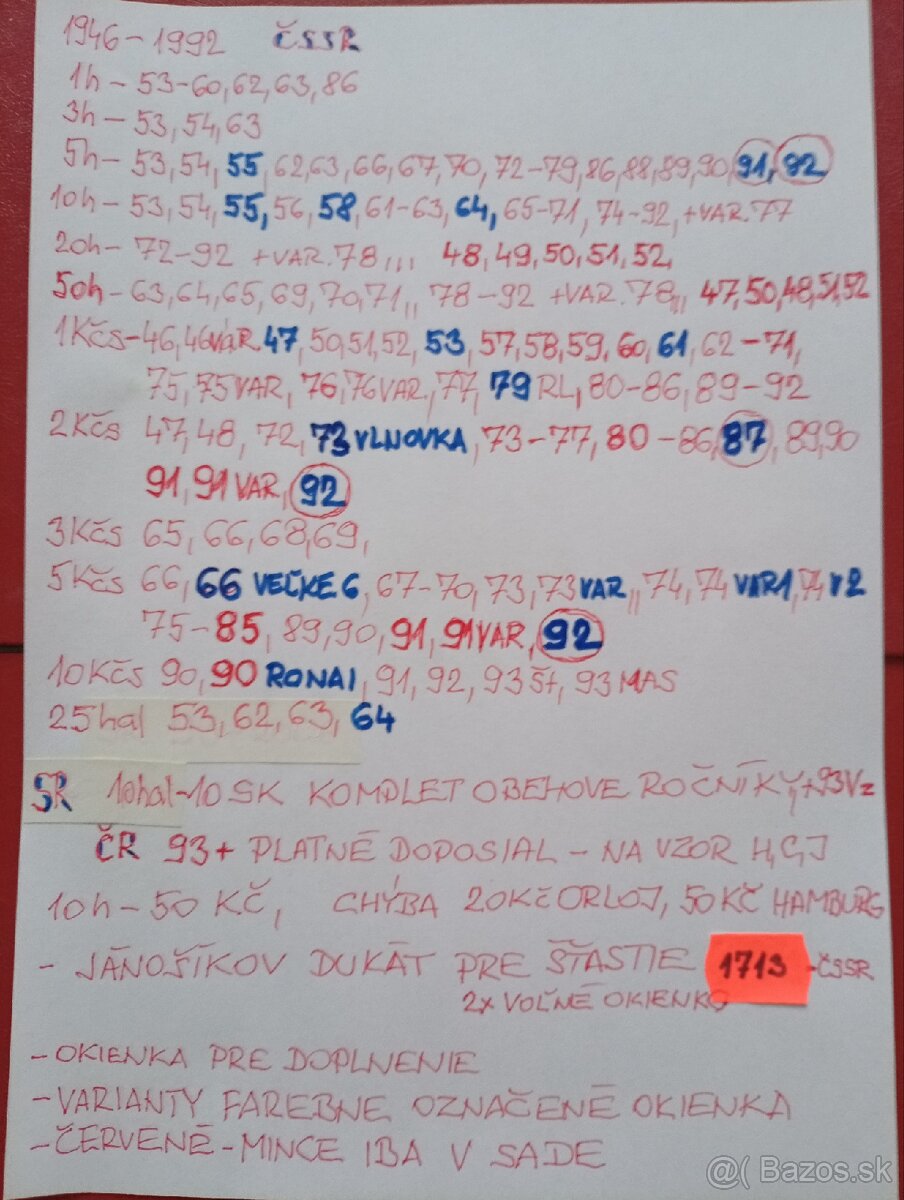 1946-1992 ČSSR
1h - 53-60, 62, 63, 86
3h - 53, 54, 63
5h - 53, 54, 55, 62, 63, 66, 67, 70, 72-79, 86, 88, 89, 90, 91, 92
10h - 53, 54, 55, 56, 58, 61-63, 64, 65-71, 74-92, +VAR.77
20h - 72-92 +VAR.78,,, 48, 49, 50, 51, 52,
50h - 63, 64, 65, 69, 70, 71,, 78-92 +VAR.78,, 47, 50, 48, 51, 52
1Kčs - 46, 46VAR. 47, 50, 51, 52, 53, 57, 58, 59, 60, 61, 62-71,
75, 75VAR, 76, 76VAR, 77, 79RL, 80-86, 89-92
2Kčs 47, 48, 72, 73 VLNOVKA, 73-77, 80-86, 87, 89, 90
91, 91VAR, 92
3Kčs 65, 66, 68, 69,
5Kčs 66, 66 VEĽKE 6, 67-70, 73, 73VAR,, 74, 74VAR1, 74V2
75-85, 89, 90, 91, 91VAR, 92
10Kčs 90, 90 RONAI, 91, 92, 93Št, 93MAS
25hal 53, 62, 63, 64
SR 10hal-10SK KOMPLET OBEHOVE ROČNÍKY, +93Vz
ČR 93+ PLATNÉ DOPOSIAL - NA VZOR H,Ç,J
10h - 50 KČ, CHÝBA 20KČ ORLOJ, 50KČ HAMBURG
- JÁNOŠÍKOV DUKÁT PRE ŠŤASTIE 1713 - ČSSR
2x VOĽNÉ OKIENKO
- OKIENKA PRE DOPLNENIE
- VARIANTY FAREBNE OZNAČENÉ OKIENKA
- ČERVENÉ - MINCE IBA V SADE
@( Bazos.sk